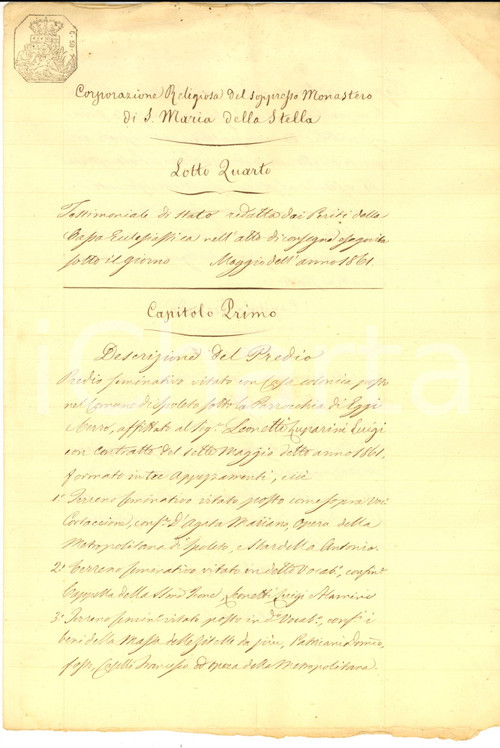 Corporazione Religiosa del soppresso Monastero
di S. Maria della Stella
Lotto Quarto
Testimoniale di Stato redatto dai Periti della
Cassa Ecclesiastica nell'atto di consegna eseguita
sotto il giorno Maggio dell'anno 1861
Capitolo Primo
Descrizione del Predio
Predio seminativo vitato con Casa colonica posto
nel Comune di Spoleto sotto la Parrocchia di Eggi
affittato al Sig. Leonetti Luparini Luigi
con contratto del sette Maggio detto anno 1861,
formato in tre Appezzamenti, cioè
1° Terreno seminativo vitato posto come sopra Voc.
conf. D'Agata Mariano, Opera della
Metropolitana di Spoleto, e Antonio.
2° Terreno seminativo vitato in detto Vocab., conf.
Cappella della Leonetti Luigi
3° Terreno semin. vitato posto in d. Vocab., conf. i
beni della Massa delle Zitelle da più,
fosso, Francesco ed opera della Metropolitana.